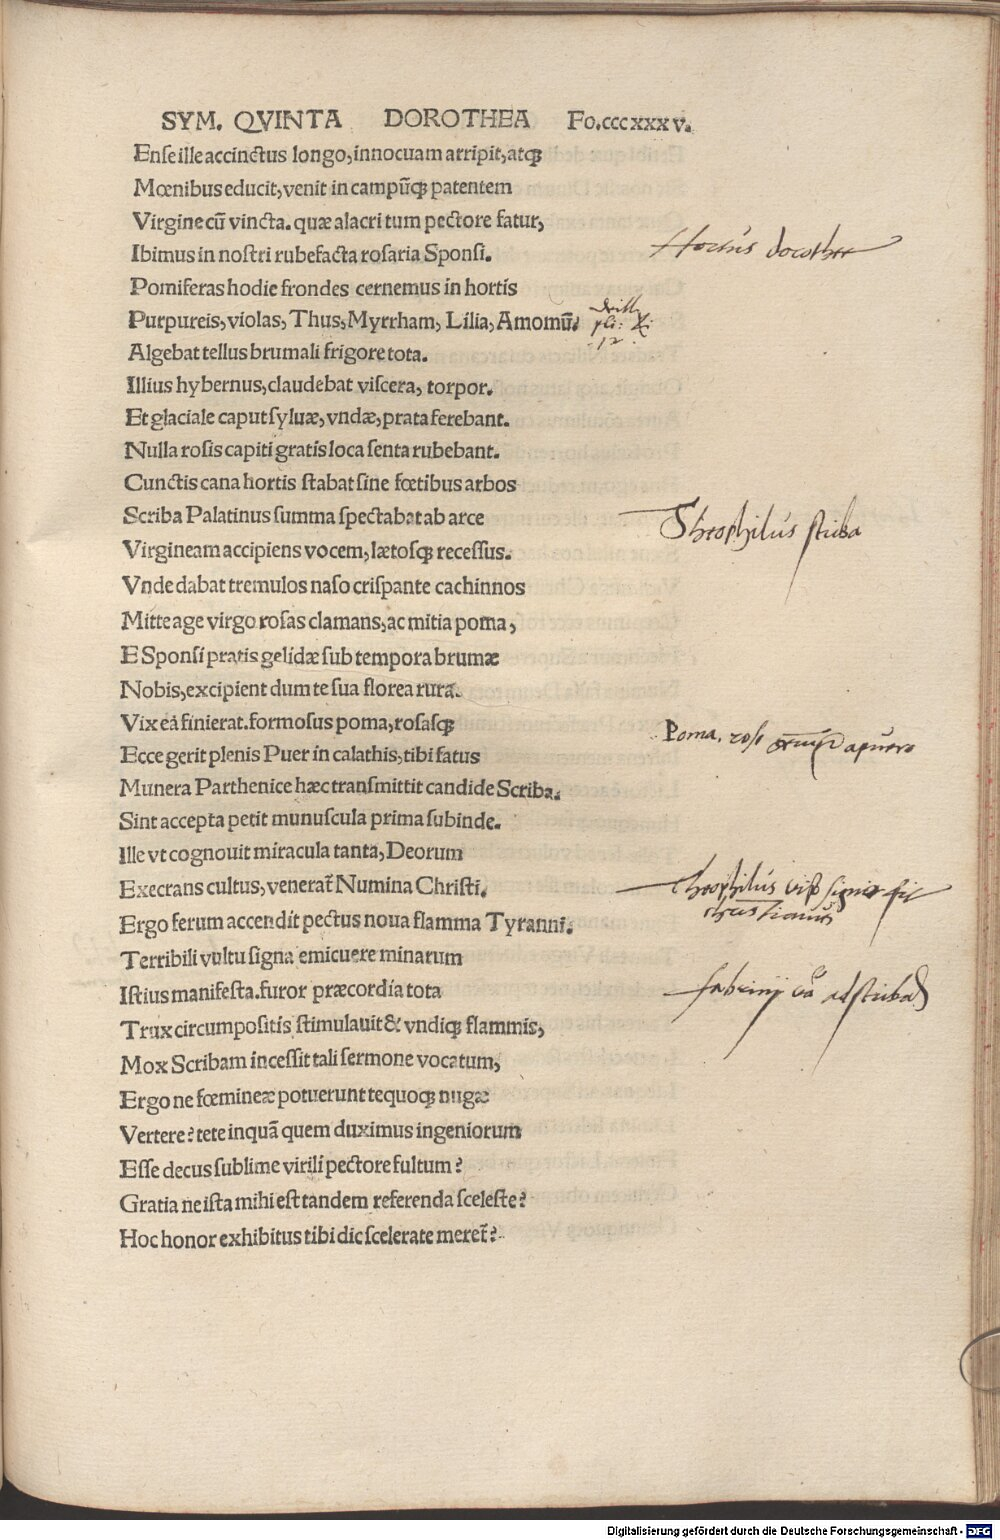 SYM. QVINTA DOROTHEA Fo.cccxxxv.
Ense ille accinctus longo, innocuam arripit, atqꝫ
Mœnibus educit, venit in campũqꝫ patentem
Virgine cũ vincta. quæ alacri tum pectore fatur,
Ibimus in nostri rubefacta rosaria Sponsi.
Hortus dorothee
Pomiferas hodie frondes cernemus in hortis
Purpureis, violas, Thus, Myrrham, Lilia, Amomũ.
12
Algebat tellus brumali frigore tota.
Illius hybernus, claudebat viscera, torpor.
Et glaciale caput syluæ, vndæ, prata ferebant.
Nulla rosis capiti gratis loca senta rubebant.
Cunctis cana hortis stabat sine fœtibus arbos
Scriba Palatinus summa spectabat ab arce
Theophilus scriba
Virgineam accipiens vocem, lætosqꝫ recessus.
Vnde dabat tremulos naso crispante cachinnos
Mitte age virgo rosas clamans, ac mitia poma,
E Sponsi pratis gelidæ sub tempora brumæ
Nobis, excipient dum te sua florea rura.
Vix ea finierat. formosus poma, rosasqꝫ
Poma. ros a puero
Ecce gerit plenis Puer in calathis, tibi fatus
Munera Parthenice hæc transmittit candide Scriba.
Sint accepta petit munuscula prima subinde.
Ille vt cognouit miracula tanta, Deorum
Execrans cultus, venerat̃ Numina Christi.
Theophilus signis fit
christianus
Ergo ferum accendit pectus noua flamma Tyranni.
Terribili vultu signa emicuere minarum
Istius manifesta. furor præcordia tota
ad scribã
Trux circumpositis stimulauit & vndiqꝫ flammis,
Mox Scribam incessit tali sermone vocatum,
Ergo ne fœmineæ potuerunt te quoqꝫ nugæ
Vertere? tete inquã quem duximus ingeniorum
Esse decus sublime virili pectore fultum?
Gratia ne ista mihi est tandem referenda sceleste?
Hoc honor exhibitus tibi dic scelerate meret̃?
Digitalisierung gefördert durch die Deutsche Forschungsgemeinschaft - DFG